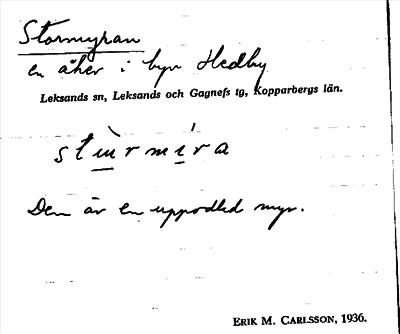 Stormyran
en åker i byn Hedby
Leksands sn, Leksands och Gagnefs tg, Kopparbergs län.
stɯ̀rmíra
Den är en uppodlad myr.
ERIK M. CARLSSON, 1936.